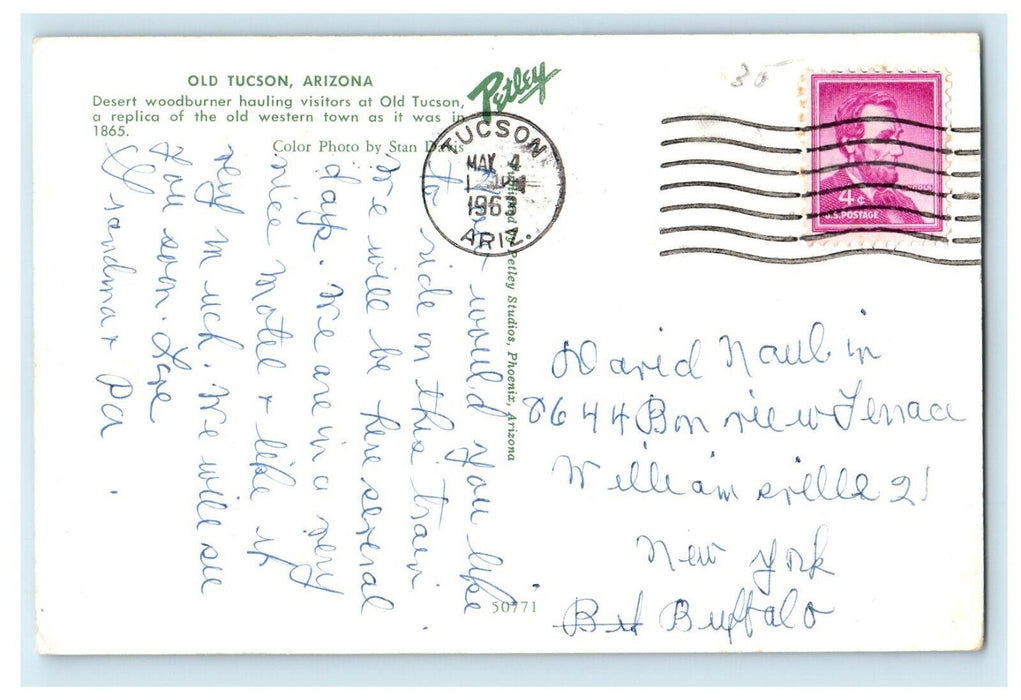 OLD TUCSON, ARIZONA
Desert woodburner hauling visitors at Old Tucson,
a replica of the old western town as it was in
1865.
Color Photo by Stan Davis
Petley
TUCSON
MAY 4
1963
ARIZ.
35
4¢
U.S. POSTAGE
LINCOLN
Published by Petley Studios, Phoenix, Arizona
would you like
to ride on this train
We will be here several
days. We are in a very
nice motel + like it
very much. We will see
you soon. Love
Grandma + Pa
50771
David Naubin
8644 Bon view Terrace
Williamsville 21
New York
Buffalo